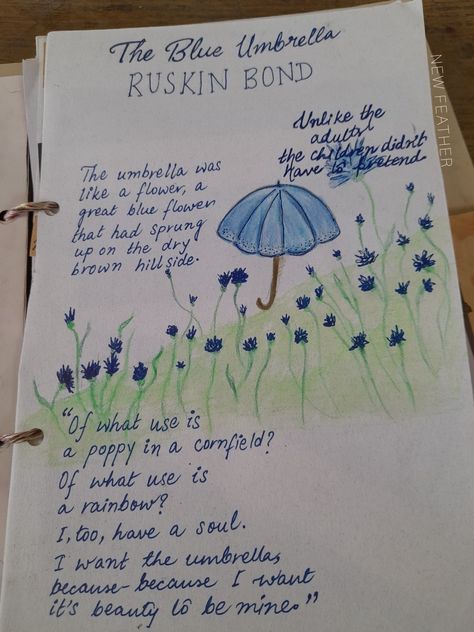 The Blue Umbrella
RUSKIN BOND
NEW FEATHER
Unlike the
adults
the children didn't
Have to pretend
The umbrella was
like a flower, a
great blue flower
that had sprung
up on the dry
brown hillside.
"Of what use is
a poppy in a cornfield?
Of what use is
a rainbow?
I, too, have a soul.
I want the umbrella,
because- because I want
it's beauty to be mine."